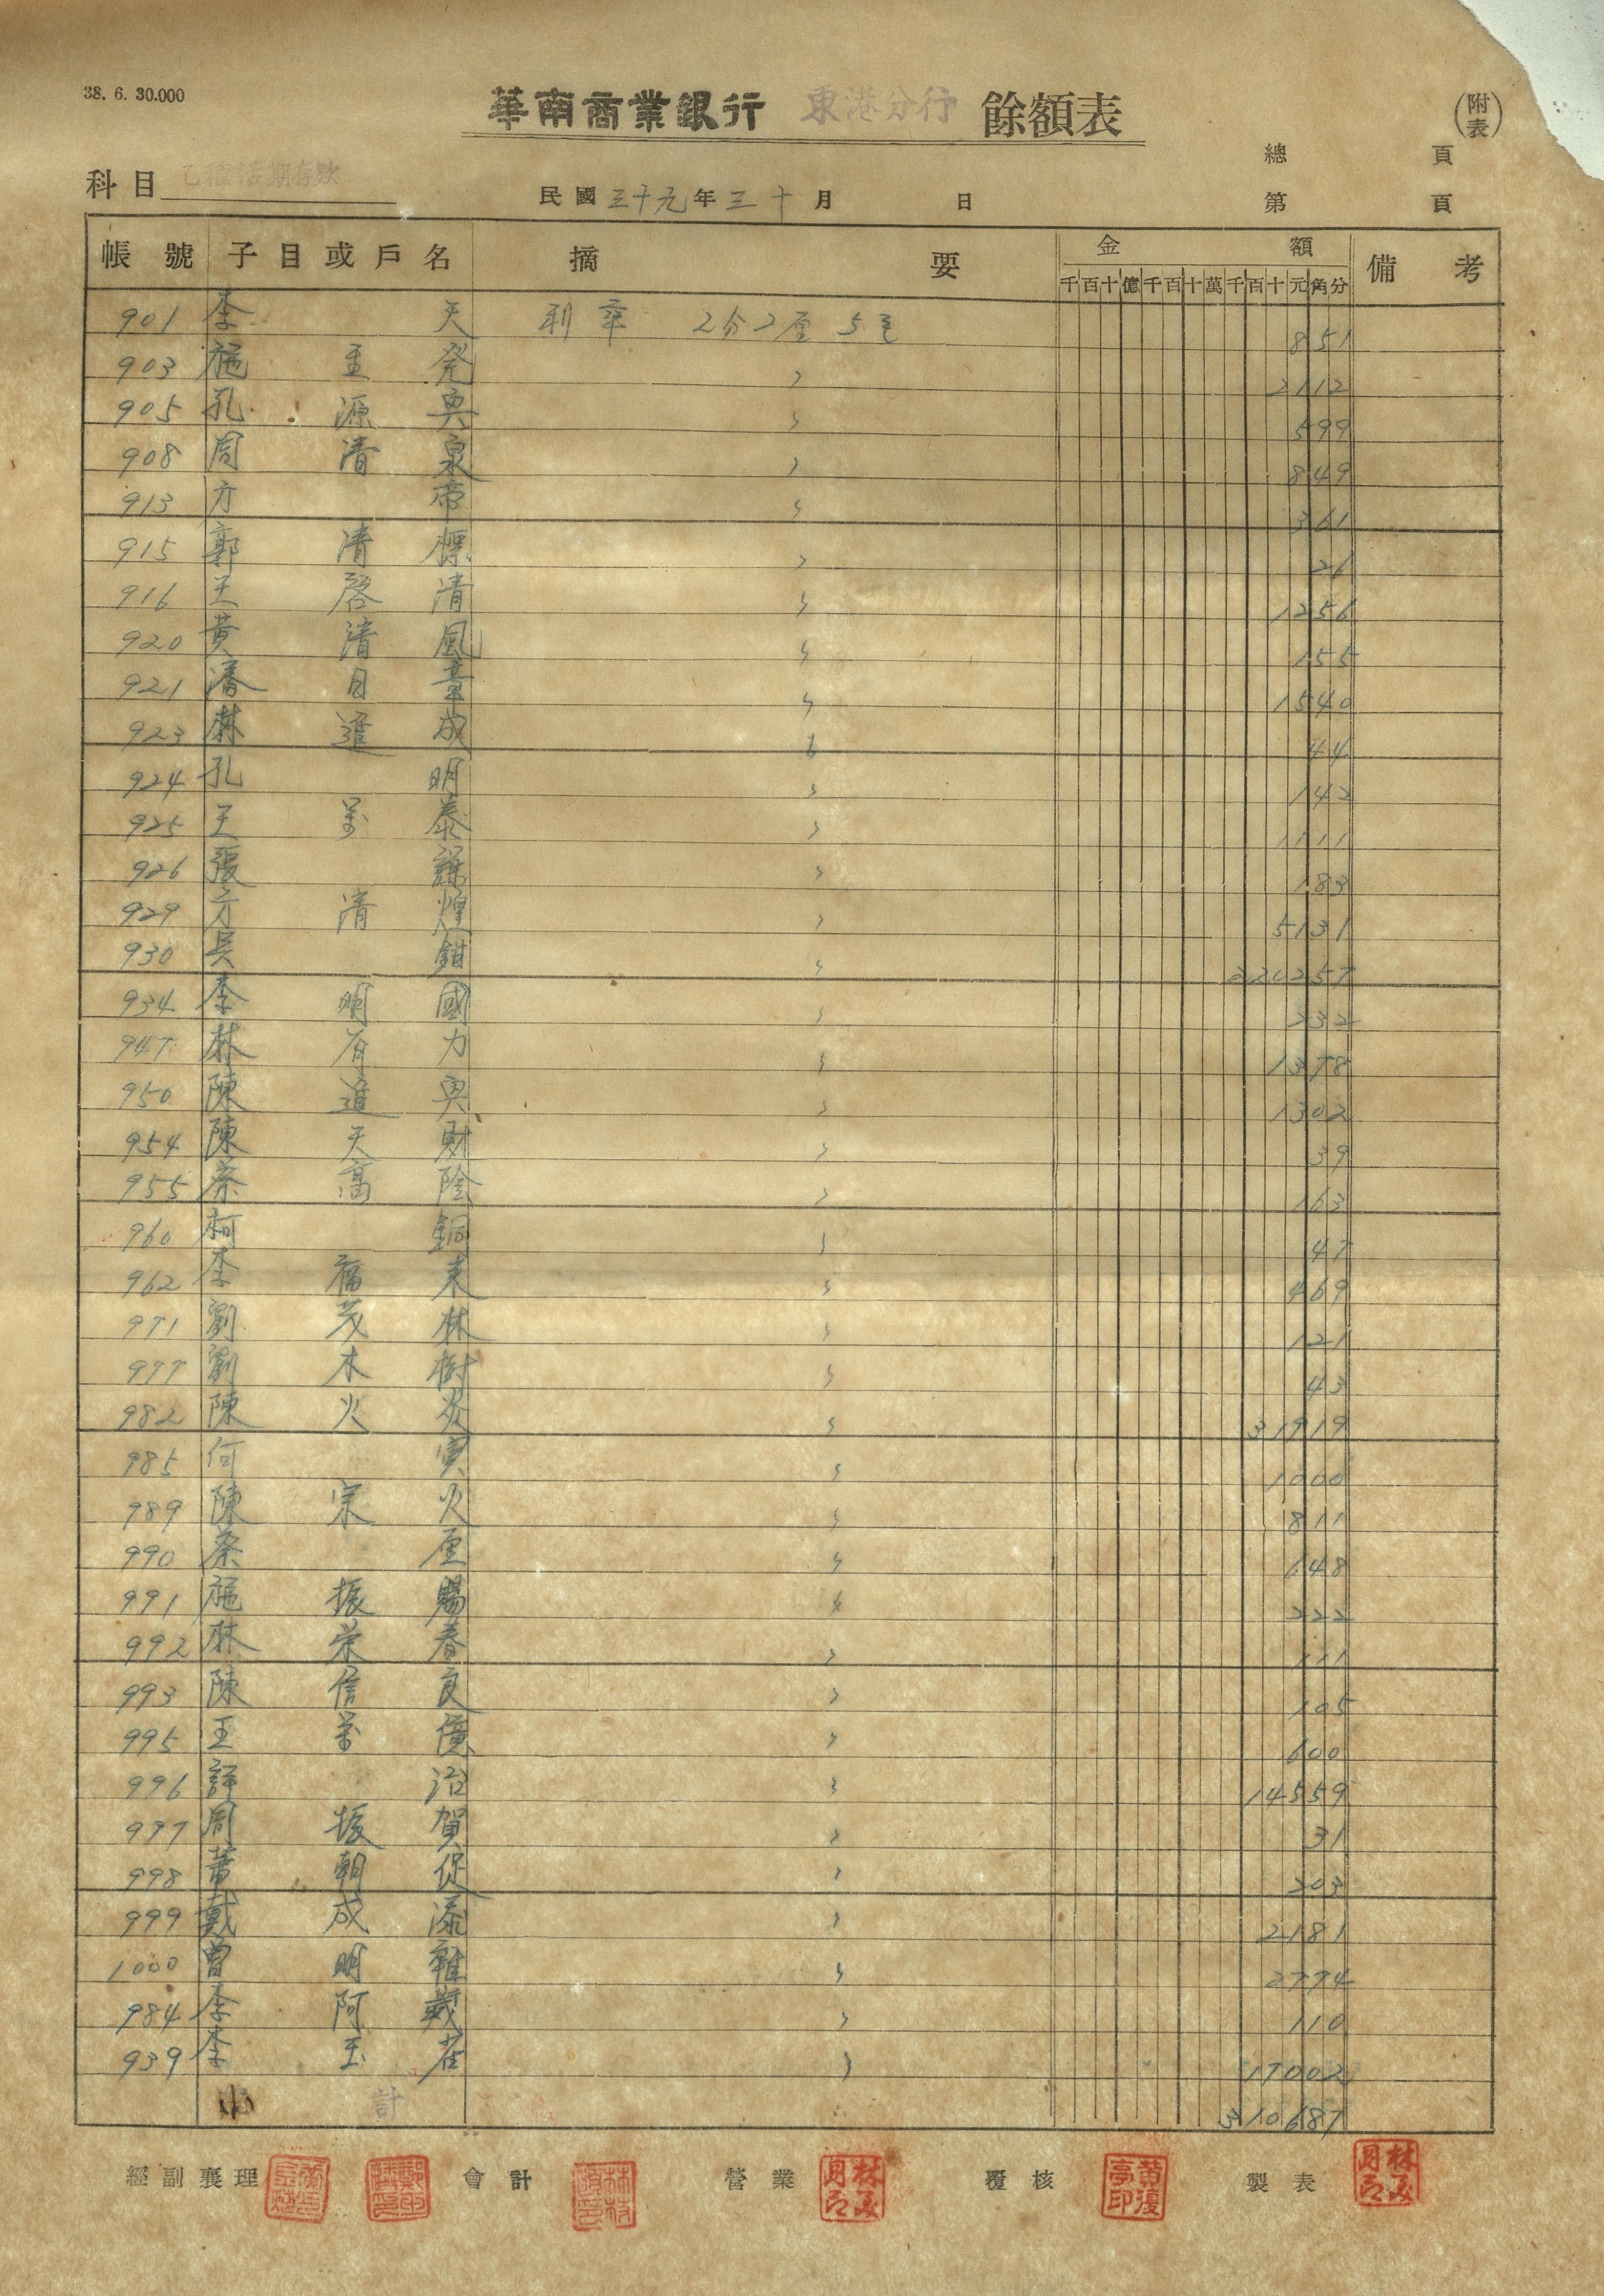 38. 6. 30.000
華南商業銀行 東港分行 餘額表
(附表)
總 頁
科目 乙種活期存款
民國 三十九 年 三 十 月 日
第 頁
帳號 子目或戶名 摘要 金額 備考
千百十億千百十萬千百十元角分
901 李 天 利率 2分2厘5毛 851
903 施 玉 発 〃 2112
905 孔 源 興 〃 599
908 周 清 泉 〃 849
913 方 帝 〃 361
915 郭 清 標 〃 26
916 王 啓 清 〃 1256
920 黃 清 風 〃 155
921 潘 目 章 〃 1540
923 林 進 成 〃 44
924 孔 明 〃 142
925 王 萬 泰 〃 1111
926 張 謀 〃 183
929 方 清 煌 〃 5131
930 吳 鉗 〃 220257
934 李 明 國 〃 232
947 林 有 力 〃 1378
950 陳 進 興 〃 1302
954 陳 天 財 〃 39
955 蔡 高 陰 〃 163
960 柯 銅 〃 47
962 李 福 來 〃 469
971 劉 茂 林 〃 121
977 劉 木 樹 〃 43
982 陳 火 炎 〃 31919
985 何 寅 〃 1000
989 陳 宗 火 〃 811
990 蔡 厘 〃 648
991 施 振 賜 〃 222
992 林 荣 春 〃 111
993 陳 信 良 〃 105
995 王 萬 億 〃 600
996 許 治 〃 14559
997 周 振 賀 〃 31
998 黃 朝 促 〃 203
999 戴 成 添 〃 2181
1000 曾 明 雜 〃 2774
984 李 阿 戴 〃 110
939 李 玉 〃 17002
小 計 310687
經副襄理 會計 營業 覆核 製表